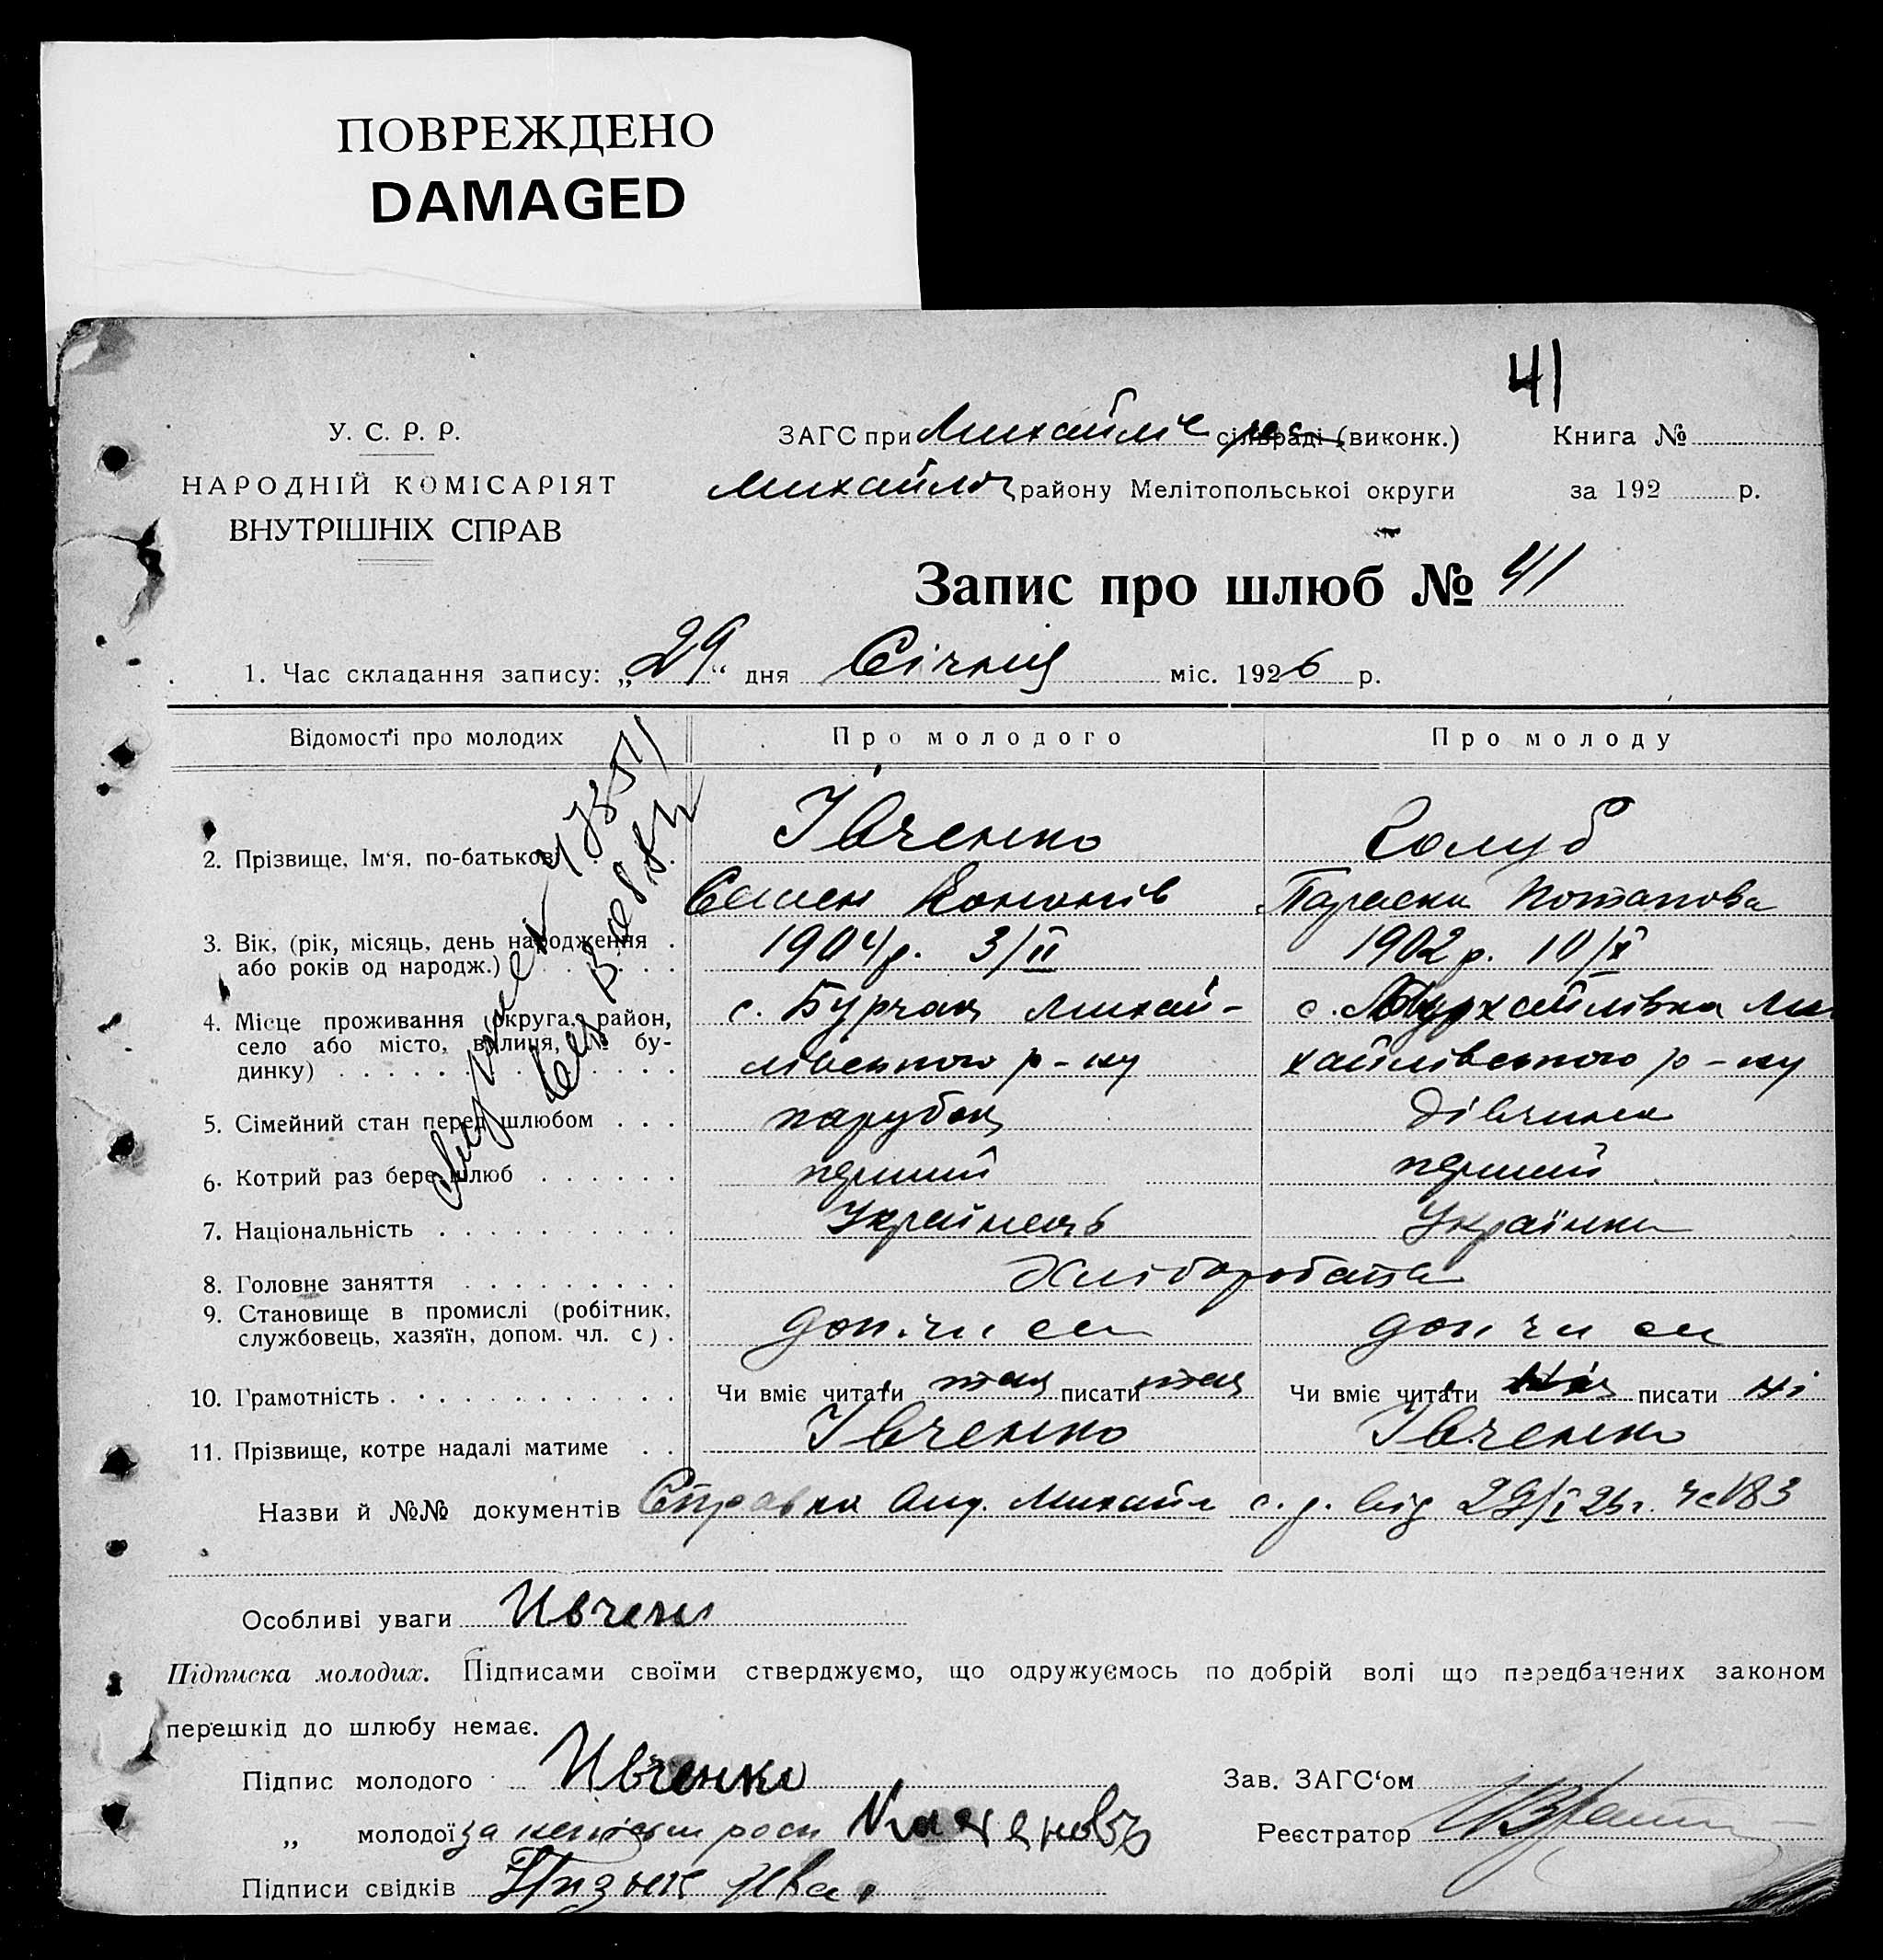 ПОВРЕЖДЕНО
DAMAGED
41
У. С. Р. Р.
НАРОДНІЙ КОМІСАРІЯТ
ВНУТРІШНІХ СПРАВ
ЗАГС при сільраді (виконк.) Книга №
району Мелітопольської округи за 192 р.
Запис про шлюб № 41
1. Час складання запису: „29“ дня Січня міс. 1926 р.
Відомості про молодих Про молодого Про молоду
Івченко Голуб
2. Прізвище, Ім‘я, по-батькові
Семен Кононів Параска Потапова
3. Вік, (рік, місяць, день народження .
або років од народж.) 1904 р. 3/II 1902 р. 10/X
4. Місце проживання (округа, район, с. Бурчак Михай- с. Михайлівка Ми
село або місто, вулиця, № бу-
динку) лівського р-ну хайлівського р-ну
5. Сімейний стан перед шлюбом . . . парубок дівчина
6. Котрий раз бере шлюб перший перший
7. Національність Українець Українка
8. Головне заняття Хліборобство
9. Становище в промислі (робітник,
службовець, хазяїн, допом. чл. с) . доп. чл. см доп чл см
10. Грамотність Чи вміє читати так писати так Чи вміє читати писати ні
11. Прізвище, котре надалі матиме . . Івченко Івченко
Назви й №№ документів Справка Михайл с. р. від 29/I 26 г. 183
Особливі уваги Ивченко
Підписка молодих. Підписами своїми стверджуємо, що одружуємось по добрій волі що передбачених законом
перешкід до шлюбу немає.
Підпис молодого Ивченко Зав. ЗАГС‘ом
„ молодої за Реєстратор
Підписи свідків